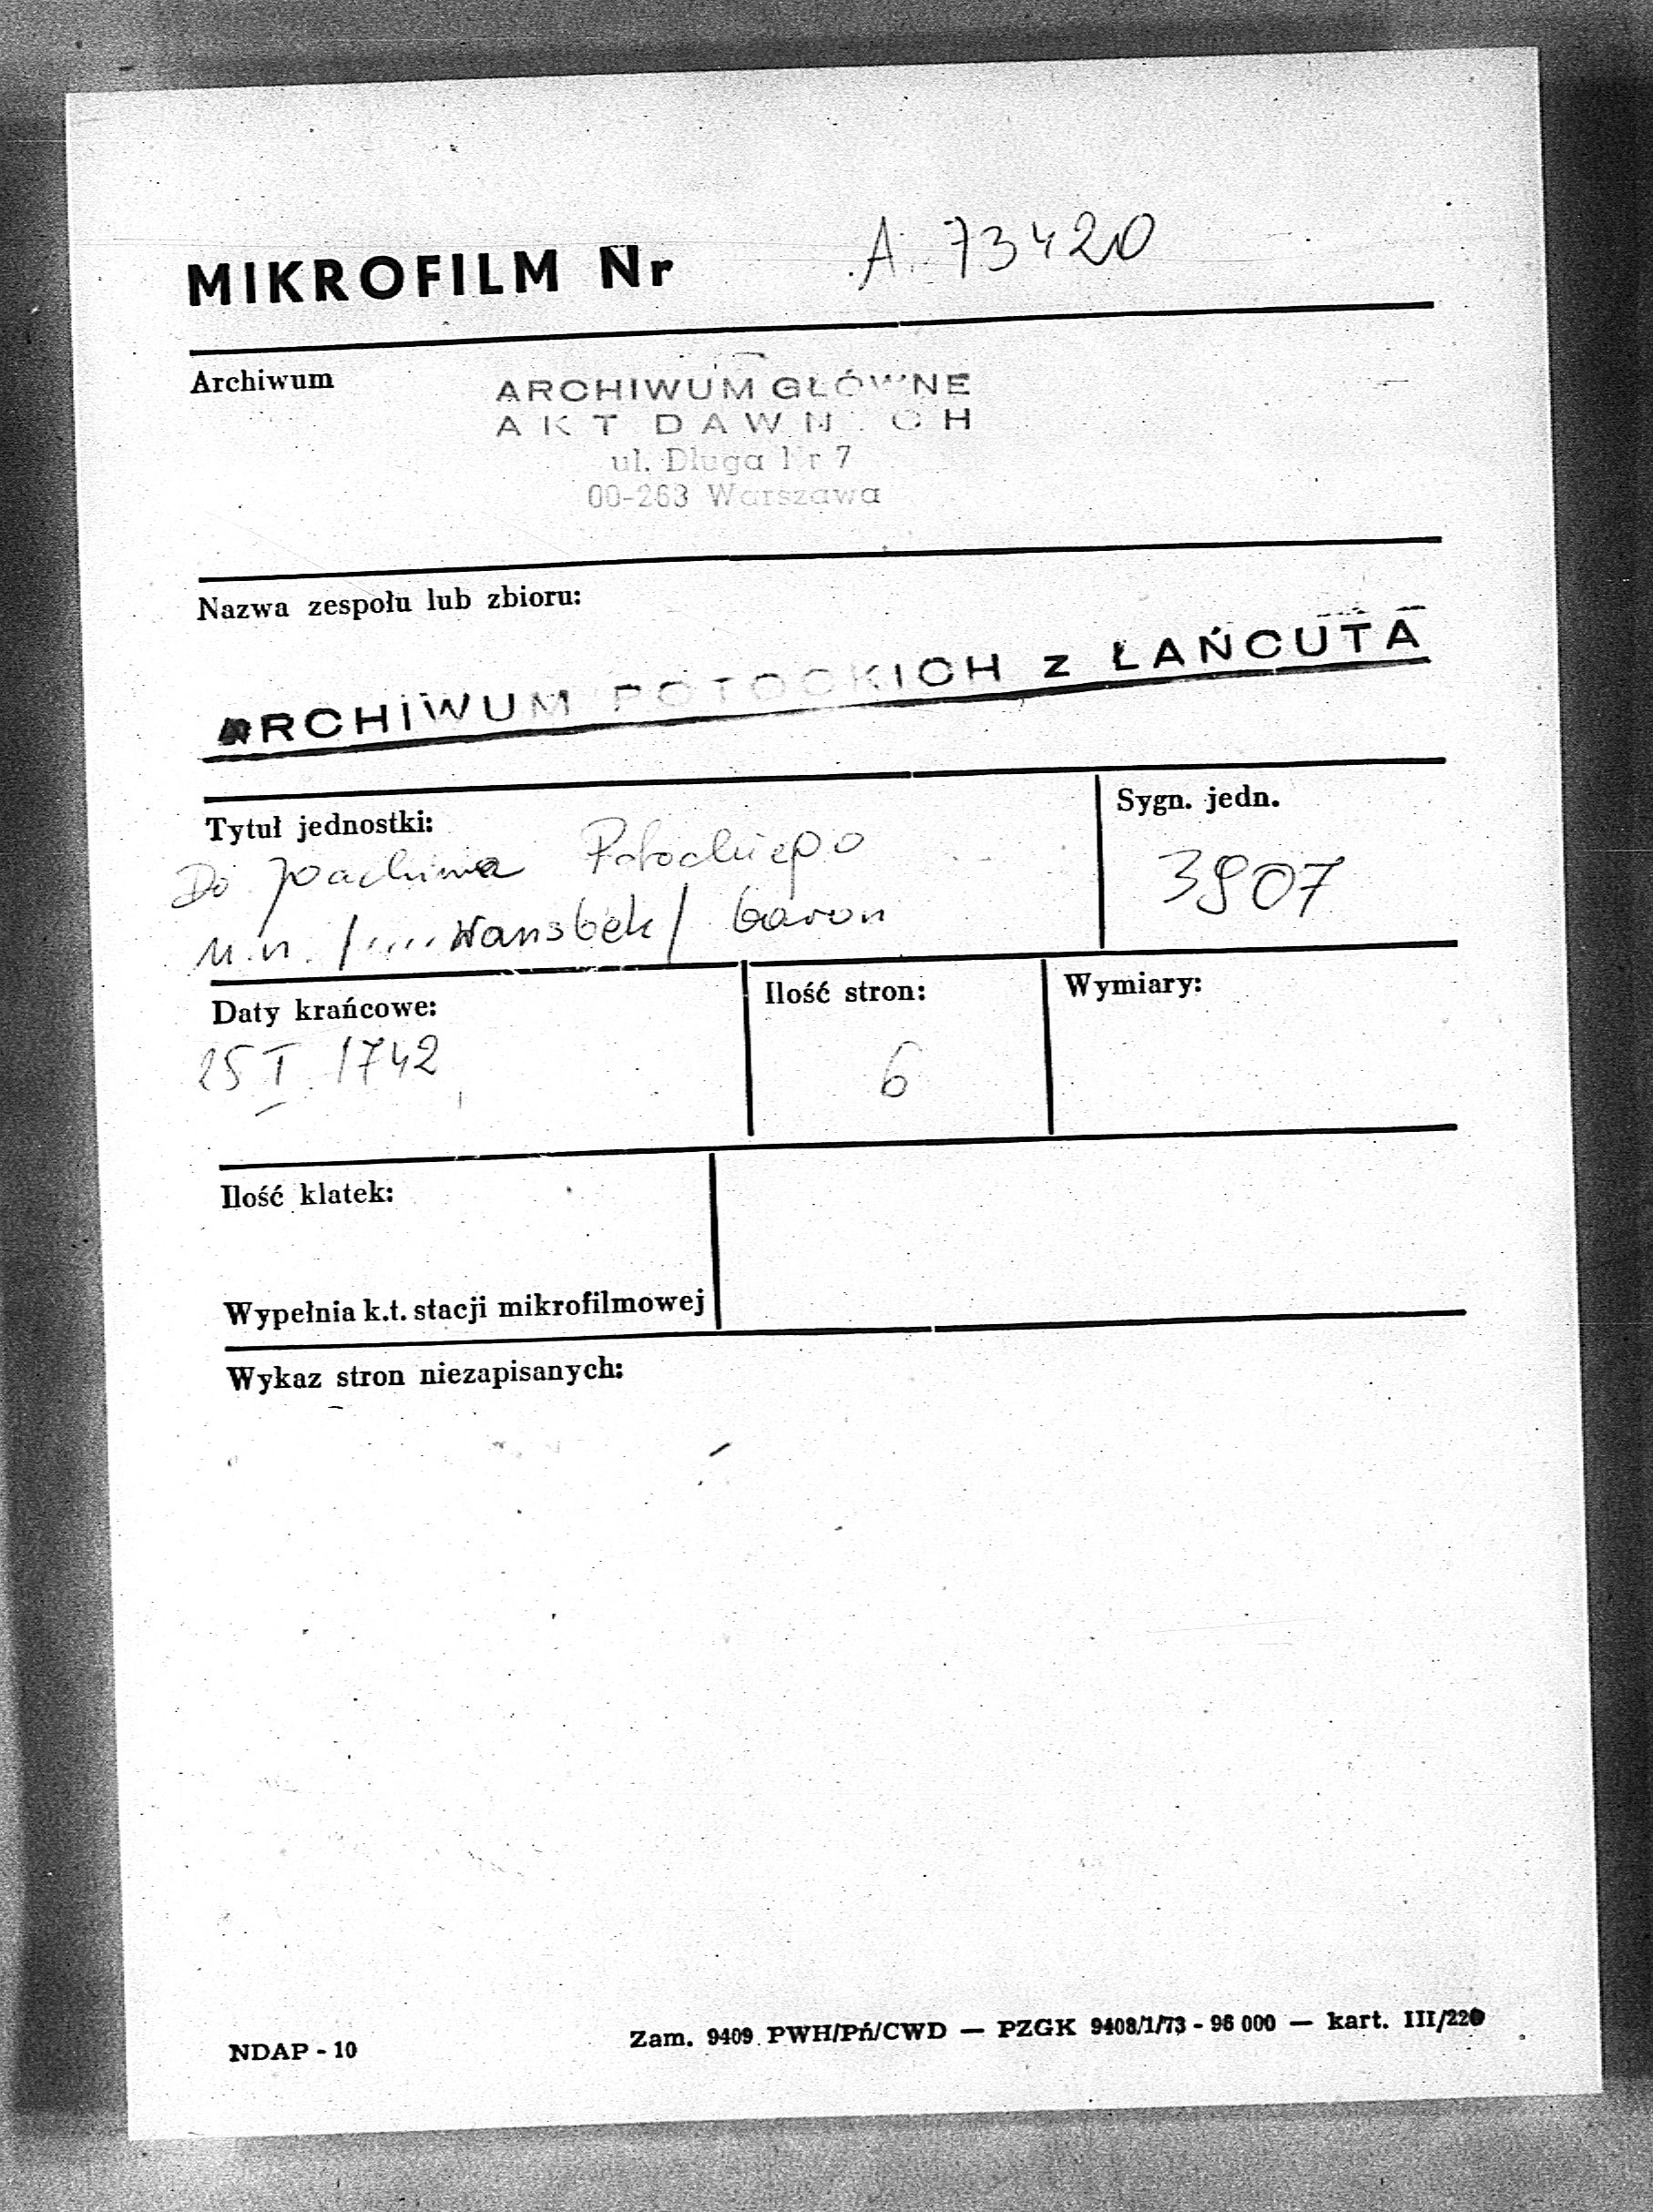 MIKROFILM Nr A. 73420
Archiwum
ARCHIWUM GŁÓWNE
AKT DAWNYCH
ul. Długa Nr 7
00-263 Warszawa
Nazwa zespołu lub zbioru:
ARCHIWUM POTOCKICH z ŁAŃCUTA
Tytuł jednostki:
Sygn. jedn.
Do Joachima Potockiego
3907
n.n. /.....Wansbek/ baron
Daty krańcowe:
Ilość stron:
Wymiary:
25 I 1742
6
Ilość klatek:
Wypełnia k.t. stacji mikrofilmowej
Wykaz stron niezapisanych:
NDAP - 10
Zam. 9409 PWH/Pń/CWD — PZGK 9408/1/73 - 96 000 — kart. III/220